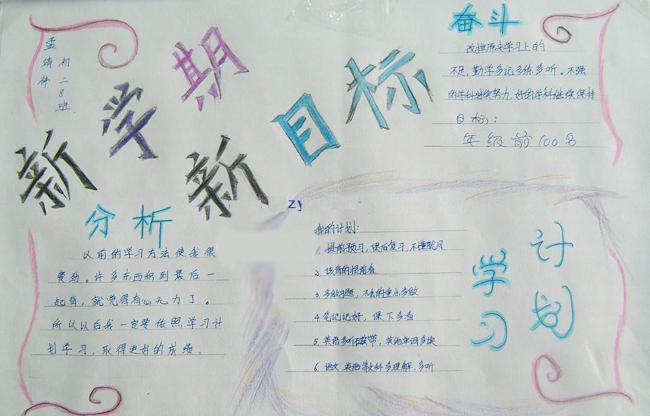 新学期
新目标
奋斗
改掉原来学习上的
不足,勤学多记多练多听。不强
的学科继续努力,好的学科继续保持
目标:
年级前100名
分析
以前的学习方法使我很
费劲。许多东西积到最后一
起背,就觉得有心无力了。
所以以后我一定要依照学习计
划学习,取得更好的成绩。
学习
计划
我的计划:
1.提前预习,课后复习,不懂就问
2.该背的提前背
3.多做习题,不会的重点多做
4.笔记记好,课下多看
5.英语多听
6.语文 英语等文科多理解,多听